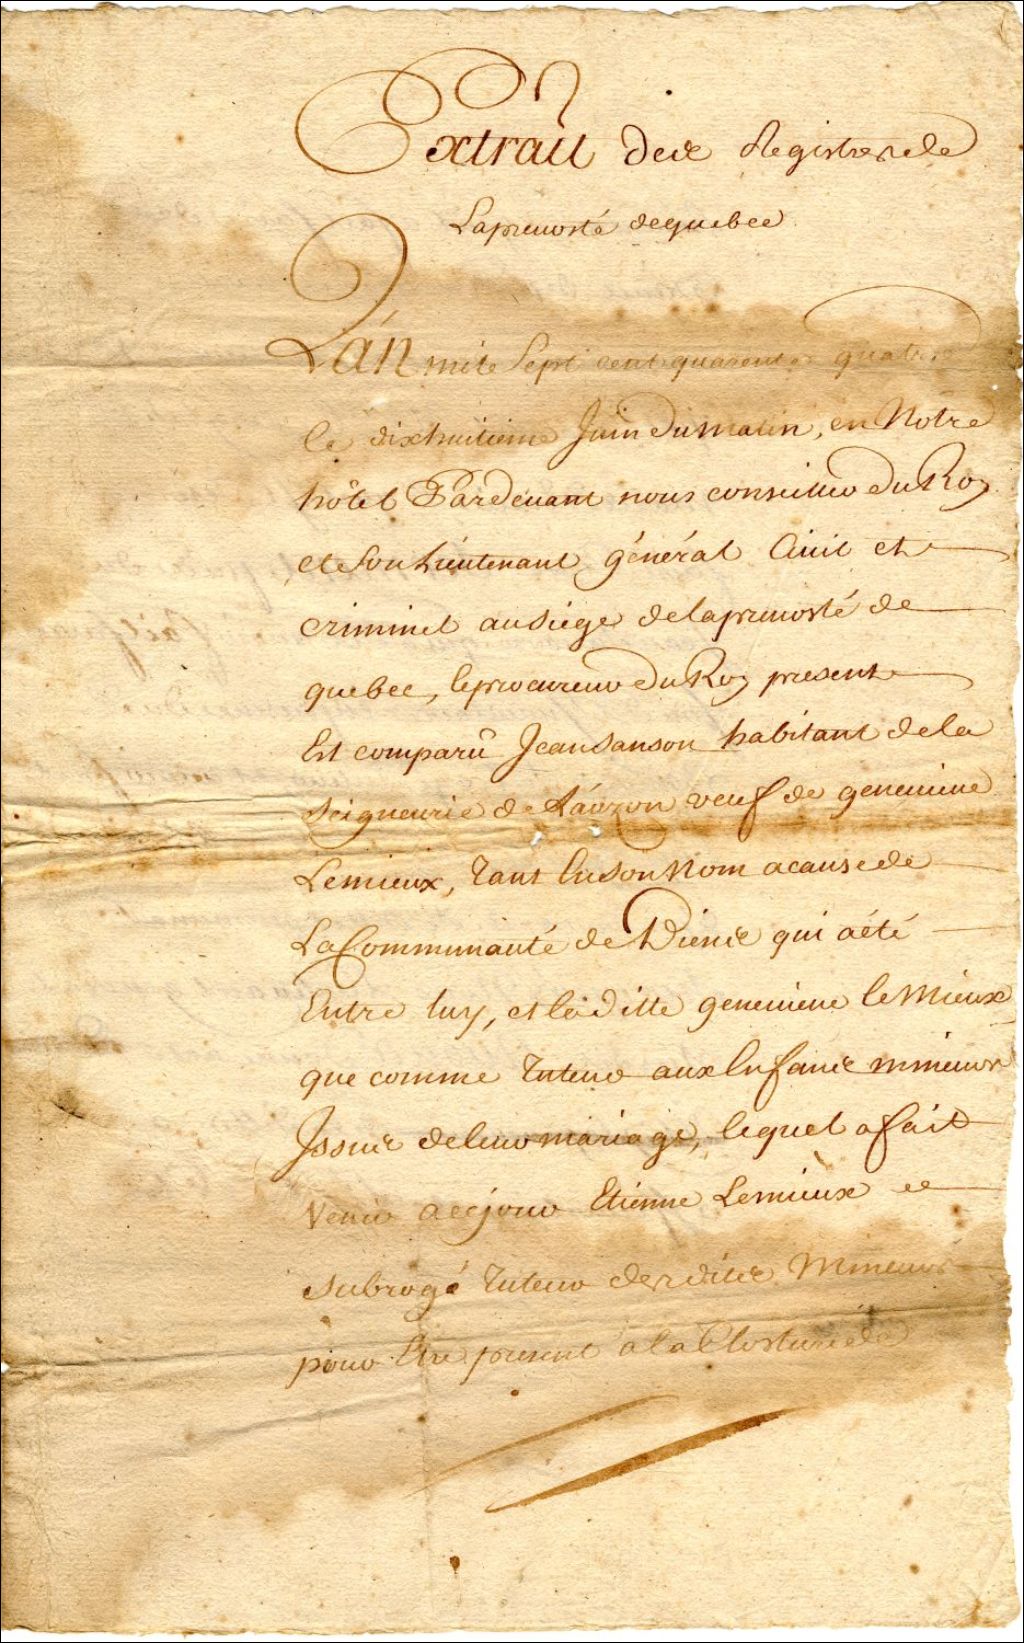 Extrait des Registres de
La prevosté de quebec
L'án mile Sept cent quarente quatre
le dixhuitieme Juin du matin, en Notre
hôtel Pardevant nous conseiller du Roy
et Son Lieutenant général Civil et
criminel au siége de la prevosté de
quebec, le procureur du Roy present
Est comparû Jean Sanson habitant de la
seigneurie de Lauzon veuf de genevieve
Lemieux, tant En son Nom a cause de
La Communauté de Biens qui a été
Entre luy, et la ditte genevieve le Mieux
que comme tuteur aux Enfans mineurs
Issus de leur mariage, lequel a fait
Venir a ce jour Etienne Lemieux
subrogé tuteur des dits Mineurs
pour Etre present a la Closture de